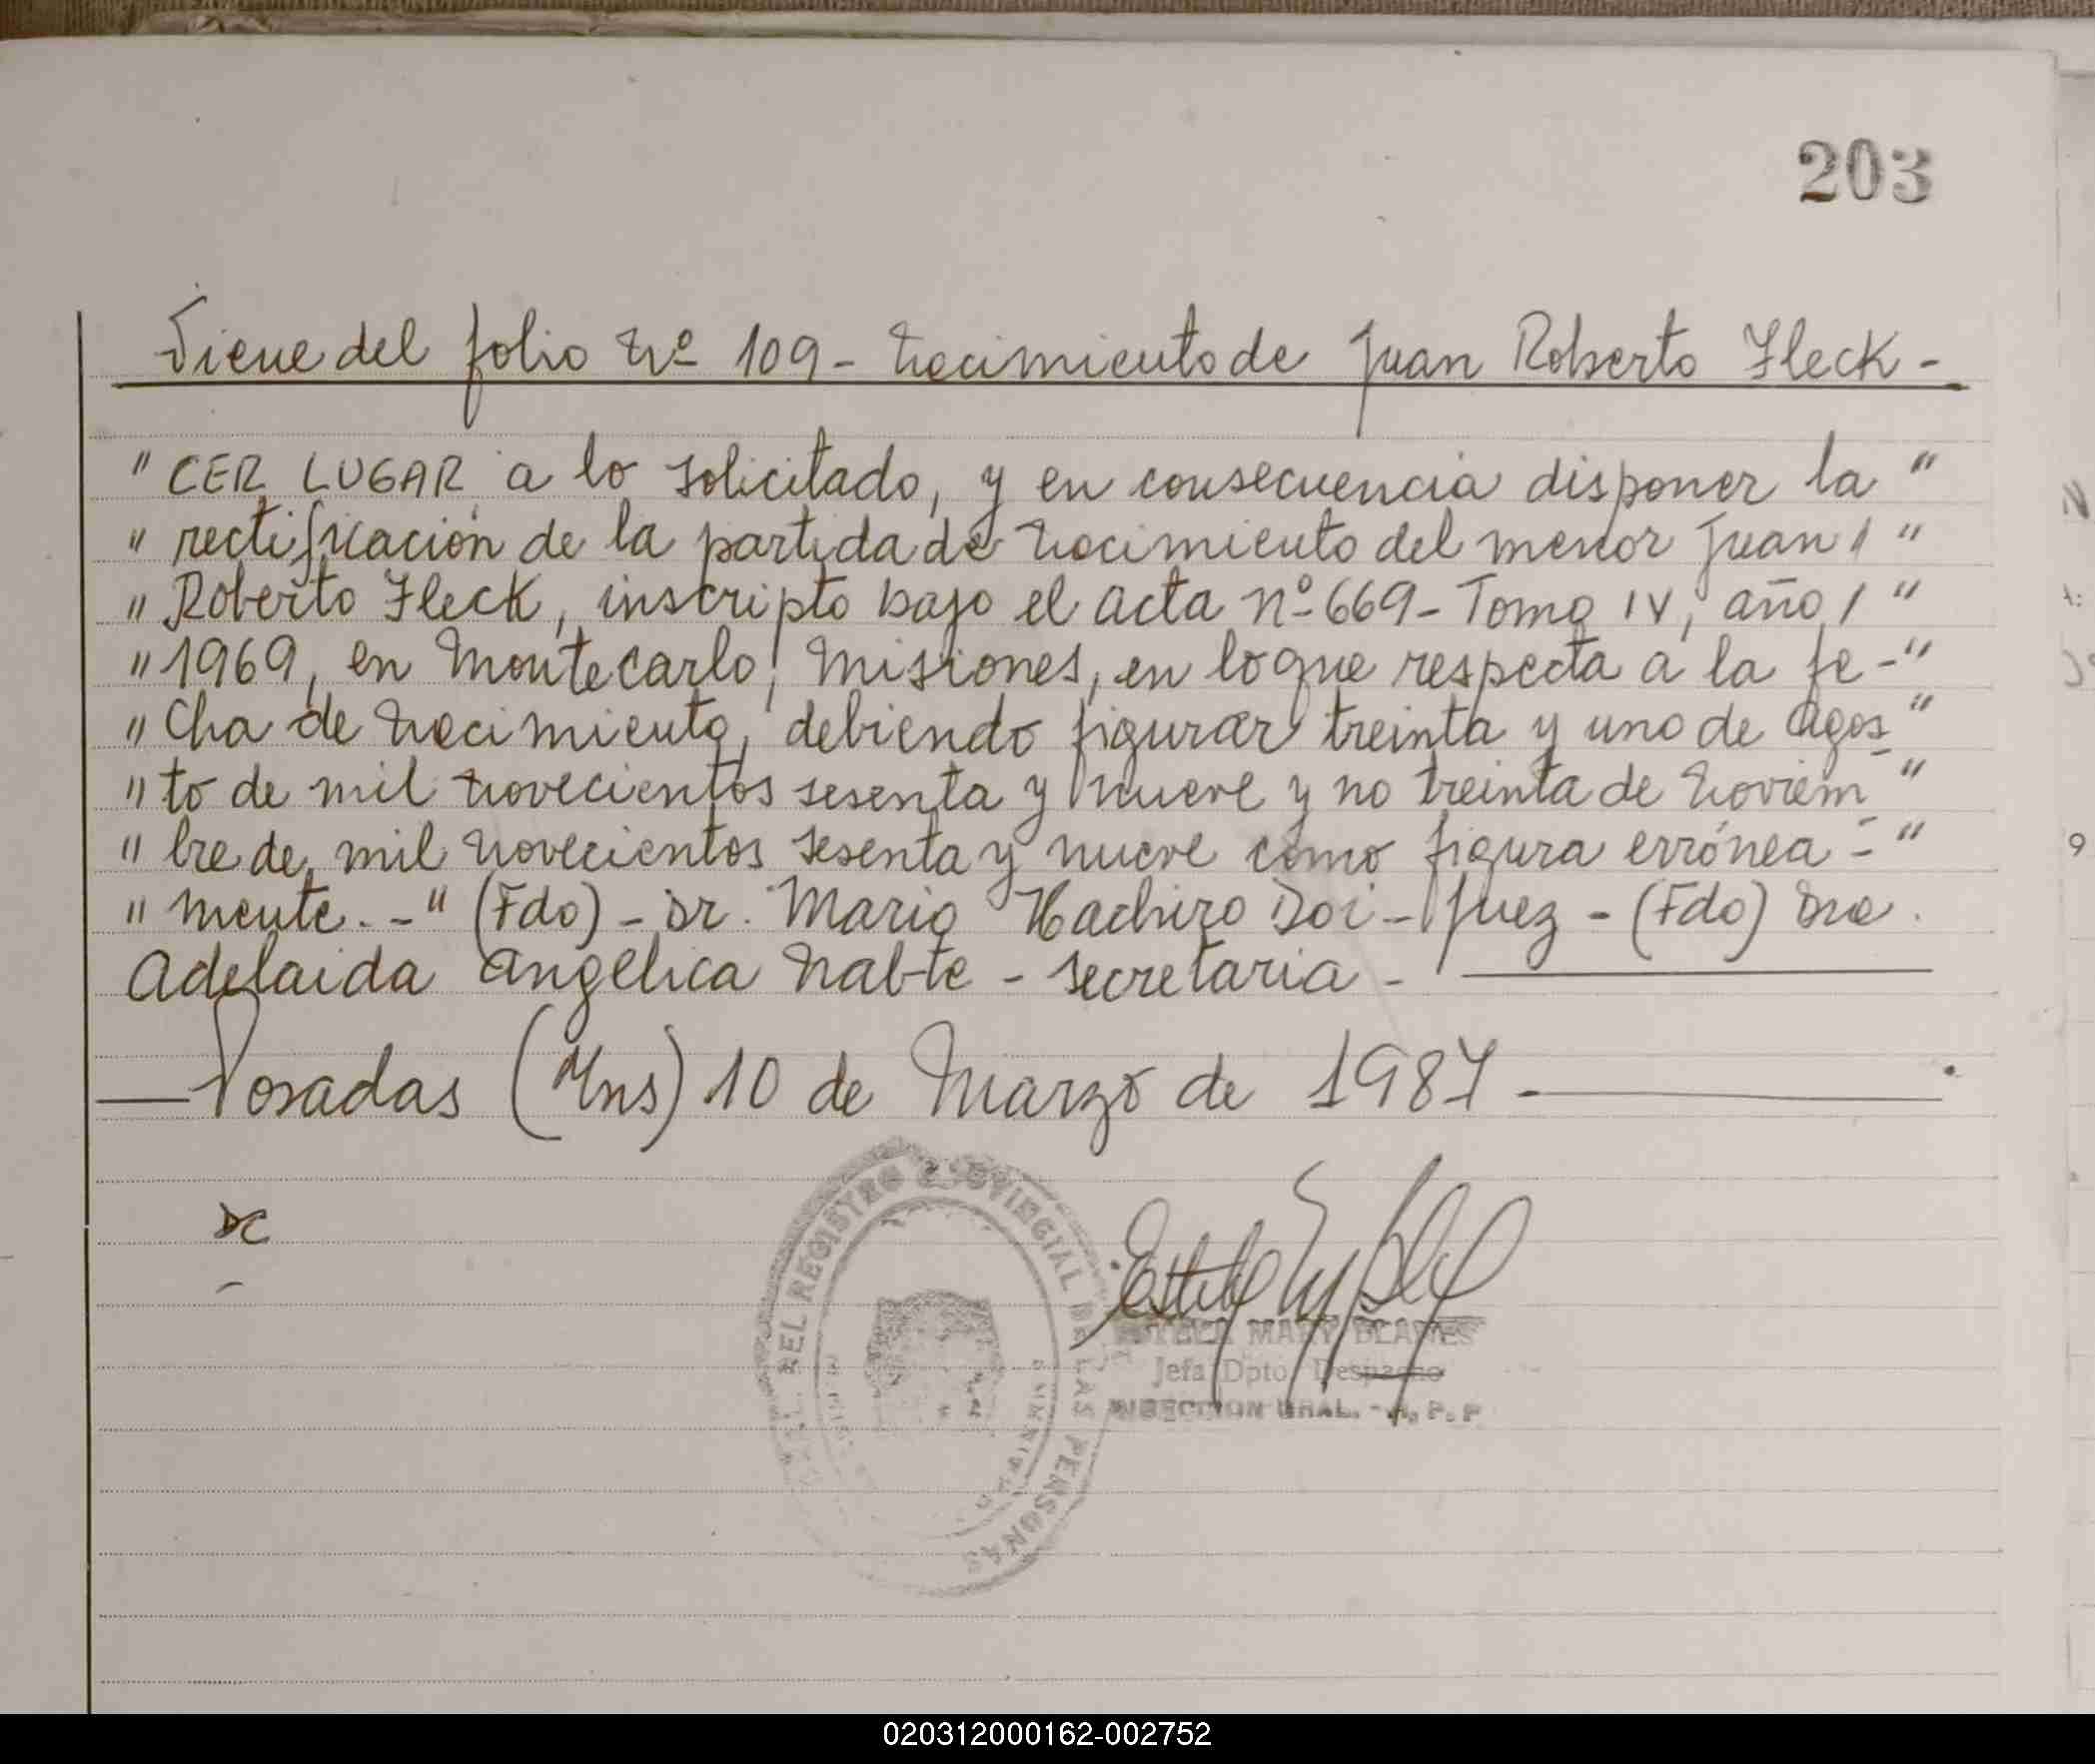 203
Viene del folio Nº 109 - Nacimiento de Juan Roberto Fleck -
" CER LUGAR a lo solicitado, y en consecuencia disponer la "
" rectificación de la partida de Nacimiento del menor Juan / "
" Roberto Fleck, inscripto bajo el acta nº 669 - Tomo IV, año / "
" 1969, en Montecarlo, Misiones, en lo que respecta a la fe - "
" cha de Nacimiento, debiendo figurar treinta y uno de Agos - "
" to de mil Novecientos sesenta y nueve y no treinta de Noviem - "
" bre de mil Novecientos sesenta y nueve como figura errónea - "
" mente. - " (Fdo) - Dr. Mario Hachiro Doi - Juez - (Fdo) Dra.
Adelaida Angélica - Secretaria -
Posadas (Mns) 10 de Marzo de 1987 -
DEL REGISTRO PROVINCIAL DE LAS PERSONAS
MARY BLANES
Jefa Dpto. Despacho
DIRECCION GRAL. - R. P. P.
020312000162-002752